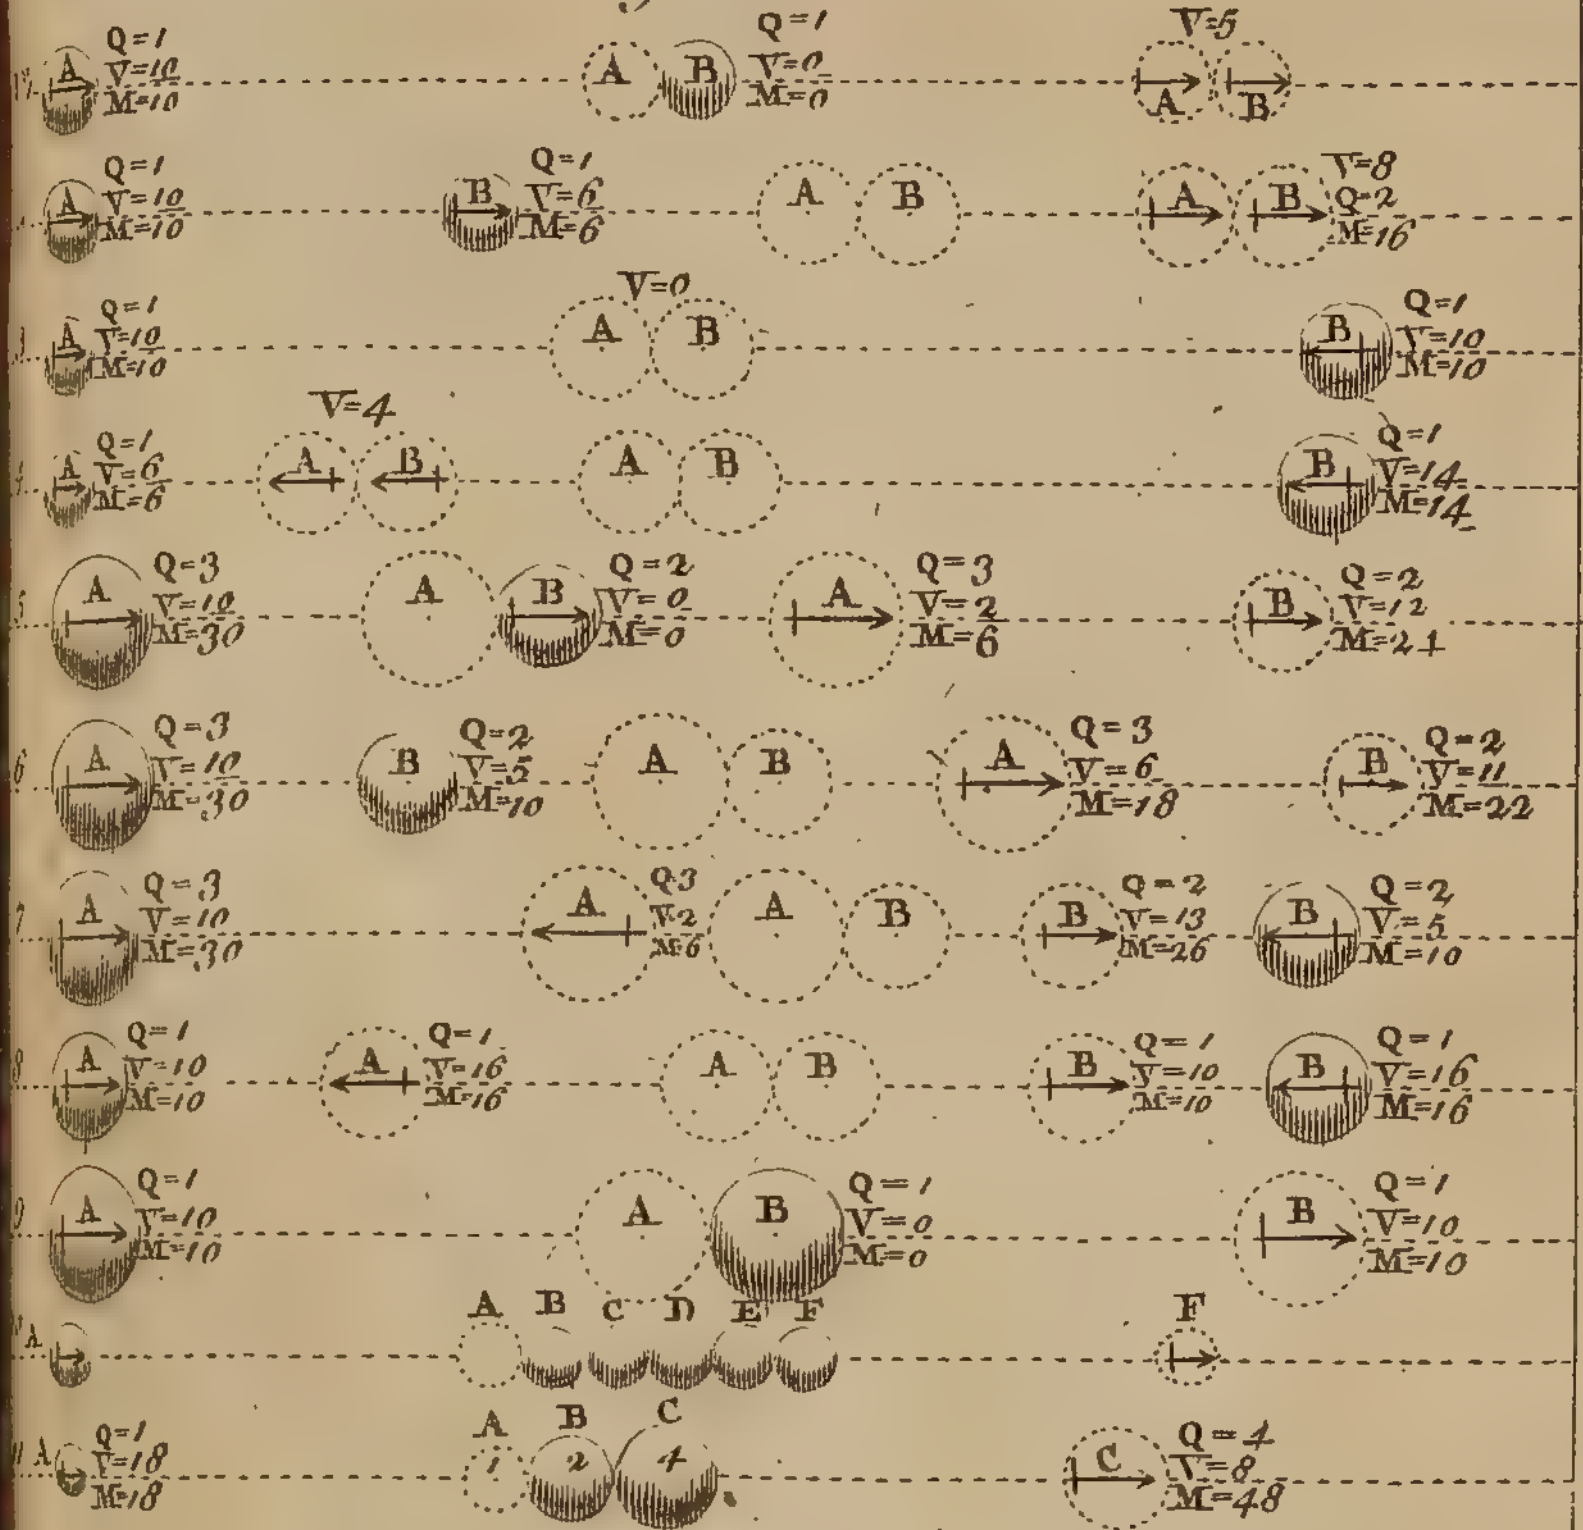 A
Q=1
V=10
M=10
A
B
Q=1
V=0
M=0
V=5
A
B
A
Q=1
V=10
M=10
B
Q=1
V=6
M=6
A
B
A
B
V=8
Q=2
M=16
3
A
Q=1
V=10
M=10
V=0
A
B
B
Q=1
V=10
M=10
4
A
Q=1
V=6
M=6
V=4
A
B
A
B
B
Q=1
V=14
M=14
5
A
Q=3
V=10
M=30
A
B
Q=2
V=0
M=0
A
Q=3
V=2
M=6
B
Q=2
V=12
M=24
6
A
Q=3
V=10
M=30
B
Q=2
V=5
M=10
A
B
A
Q=3
V=6
M=18
B
Q=2
V=11
M=22
7
A
Q=3
V=10
M=30
A
Q.3
V.2
M=6
A
B
B
Q=2
V=13
M=26
B
Q=2
V=5
M=10
8
A
Q=1
V=10
M=10
A
Q=1
V=16
M=16
A
B
B
Q=1
V=10
M=10
B
Q=1
V=16
M=16
9
A
Q=1
V=10
M=10
A
B
Q=1
V=0
M=0
B
Q=1
V=10
M=10
A
A B C D E F
F
A
Q=1
V=18
M=18
A B C
1 2 4
C
Q=4
V=8
M=48